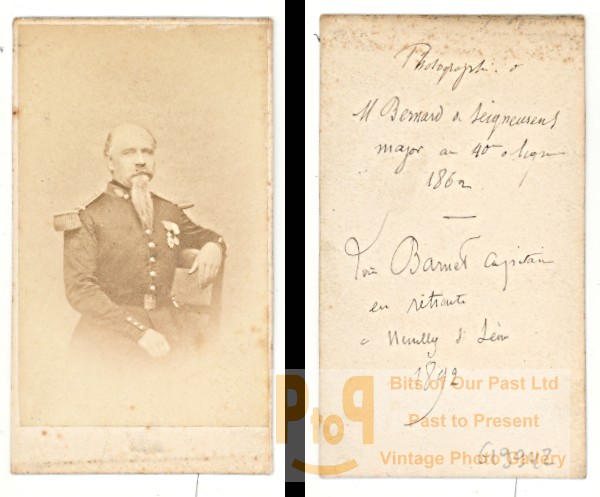 Photographie
M Bernard de Seigneurens
major au 40e de ligne
1862
Barnet Capitaine
en retraite
à Neuilly
1892
Bits of Our Past Ltd
Past to Present
Vintage Photo Gallery
PtoP